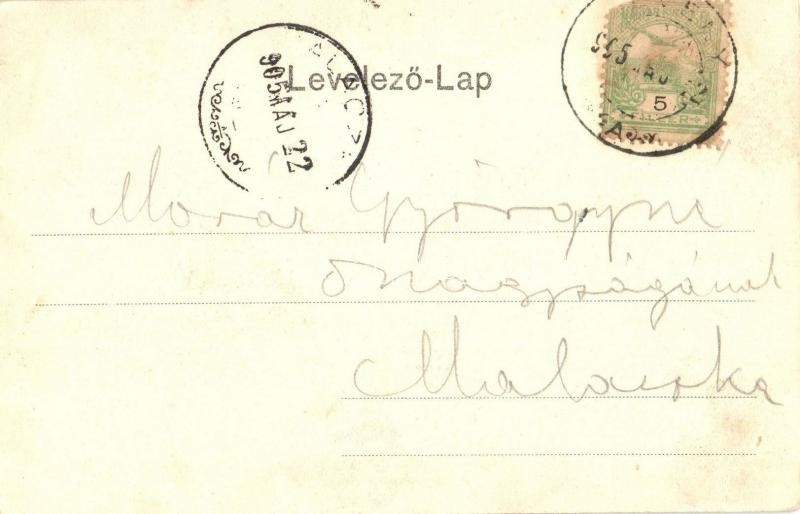 Levelező-Lap
905 MÁJ 22
905
5
Moraz Györgyne
Őnagyságának
Malaczka